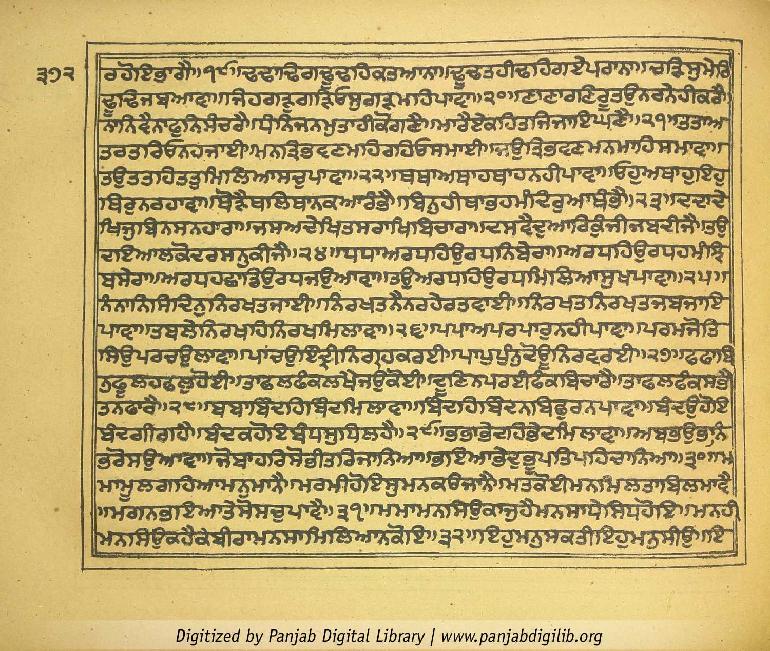 ੩੭੨
ਰਹੋਇਭਾਗੈ॥੧੯॥ਢਢਾਢਿਗਢੂਢਹਿਕਤਆਨਾ॥ਢੂਢਤਹੀਢਹਿਗਏਪਰਾਨਾ॥ਚੜਿਸੁਮੇਰਿ
ਢੂਢਿਜਬਆਵਾ॥ਜਿਹਗੜੁਗੜਿਓਸੁਗੜਮਹਿਪਾਵਾ॥੨੦॥ਣਾਣਾਰਣਿਰੂਤਉਨਰਨੇਹੀਕਰੈ॥
ਨਾਨਿਵੈਨਾਫੁਨਿਸੰਚਰੈ॥ਧੰਨਿਜਨਮੁਤਾਹੀਕੋਗਣੈ॥ਮਾਰੈਏਕਹਿਤਜਿਜਾਇਘਣੈ॥੨੧॥ਤਤਾਅ
ਤਰਤਰਿਓਨਹਜਾਈ॥ਤਨਤ੍ਰਿਭਵਣਮਹਿਰਹਿਓਸਮਾਈ॥ਜਉਤ੍ਰਿਭਵਣਤਨਮਾਹਿਸਮਾਵਾ॥
ਤਉਤਤਹਿਤਤੁਮਿਲਿਆਸਚੁਪਾਵਾ॥੨੨॥ਥਥਾਅਥਾਹਥਾਹਨਹੀਪਾਵਾ॥ਓਹੁਅਥਾਹੁਇਹੁ
ਥਿਰੁਨਰਹਾਵਾ॥ਥੋੜੈਥਲਿਥਾਨਕਆਰੰਭੈ॥ਬਿਨੁਹੀਥਾਭਹਮੰਦਿਰੁਥੰਭੈ॥੨੩॥ਦਦਾਦੇ
ਖਿਜੁਬਿਨਸਨਹਾਰਾ॥ਜਸਅਦੇਖਿਤਸਰਾਖਿਬਿਚਾਰਾ॥ਦਸਵੈਦੁਆਰਿਕੁੰਚੀਜਬਦੀਜੈ॥ਤਉ
ਦਇਆਲਕੋਦਰਸਨੁਕੀਜੈ॥੨੪॥ਧਧਾਅਰਧਹਿਉਰਧਨਿਬੇਰਾ॥ਅਰਧਹਿਉਰਧਹਮੰਝਿ
ਬਸੇਰਾ॥ਅਰਧਹਛਾਡਿਉਰਧਜਉਆਵਾ॥ਤਉਅਰਧਹਿਉਰਧਮਿਲਿਆਸੁਖਪਾਵਾ॥੨੫॥
ਨੰਨਾਨਿਸਿਦਿਨੁਨਿਰਖਤਜਾਈ॥ਨਿਰਖਤਨੈਨਰਹੇਰਤਵਾਈ॥ਨਿਰਖਤਨਿਰਖਤਜਬਜਾਇ
ਪਾਵਾ॥ਤਬਲੇਨਿਰਖਹਿਨਿਰਖਮਿਲਾਵਾ॥੨੬॥ਪਪਾਅਪਰਪਾਰੁਨਹੀਪਾਵਾ॥ਪਰਮਜੋਤਿ
ਸਿਉਪਰਚਉਲਾਵਾ॥ਪਾਂਚਉਇੰਦ੍ਰੀਨਿਗ੍ਰਹਕਰਈ॥ਪਾਪੁਪੁੰਨੁਦੋਊਨਿਰਵਰਈ॥੨੭॥ਫਫਾਬਿ
ਨੁਫੂਲਹਫਲੁਹੋਈ॥ਤਾਫਲਫੰਕਲਖੈਜਉਕੋਈ॥ਦੂਣਿਨਪਰਈਫੰਕਬਿਚਾਰੈ॥ਤਾਫਲਫੰਕਸਭੈ
ਤਨਫਾਰੈ॥੨੮॥ਬਬਾਬਿੰਦਹਿਬਿੰਦਮਿਲਾਵਾ॥ਬਿੰਦਹਿਬਿੰਦਨਬਿਛੁਰਨਪਾਵਾ॥ਬੰਦਉਹੋਇ
ਬੰਦਗੀਗਹੈ॥ਬੰਦਕਹੋਇਬੰਧਸੁਧਿਲਹੈ॥੨੯॥ਭਭਾਭੇਦਹਿਭੇਦਮਿਲਾਵਾ॥ਅਬਭਉਭਾਨਿ
ਭਰੋਸਉਆਵਾ॥ਜੋਬਾਹਰਿਸੋਭੀਤਰਿਜਾਨਿਆ॥ਭਇਆਭੇਦੁਭੂਪਤਿਪਹਿਚਾਨਿਆ॥੩੦॥ਮ
ਮਾਮੂਲਗਹਿਆਮਨੁਮਾਨੈ॥ਮਰਮੀਹੋਇਸੁਮਨਕਉਜਾਨੈ॥ਮਤਕੋਈਮਨਮਿਲਤਾਬਿਲਮਾਵੈ
॥ਮਗਨਭਇਆਤੇਸੋਸਚੁਪਾਵੈ॥੩੧॥ਮਮਾਮਨਸਿਉਕਾਜੁਹੈਮਨਸਾਧੇਸਿਧਿਹੋਇ॥ਮਨਹੀ
ਮਨਸਿਉਕਹੈਕਬੀਰਾਮਨਸਾਮਿਲਿਆਨਕੋਇ॥੩੨॥ਇਹੁਮਨੁਸਕਤੀਇਹੁਮਨੁਸੀਉ॥ਇ
Digitized by Panjab Digital Library | www.panjabdigilib.org